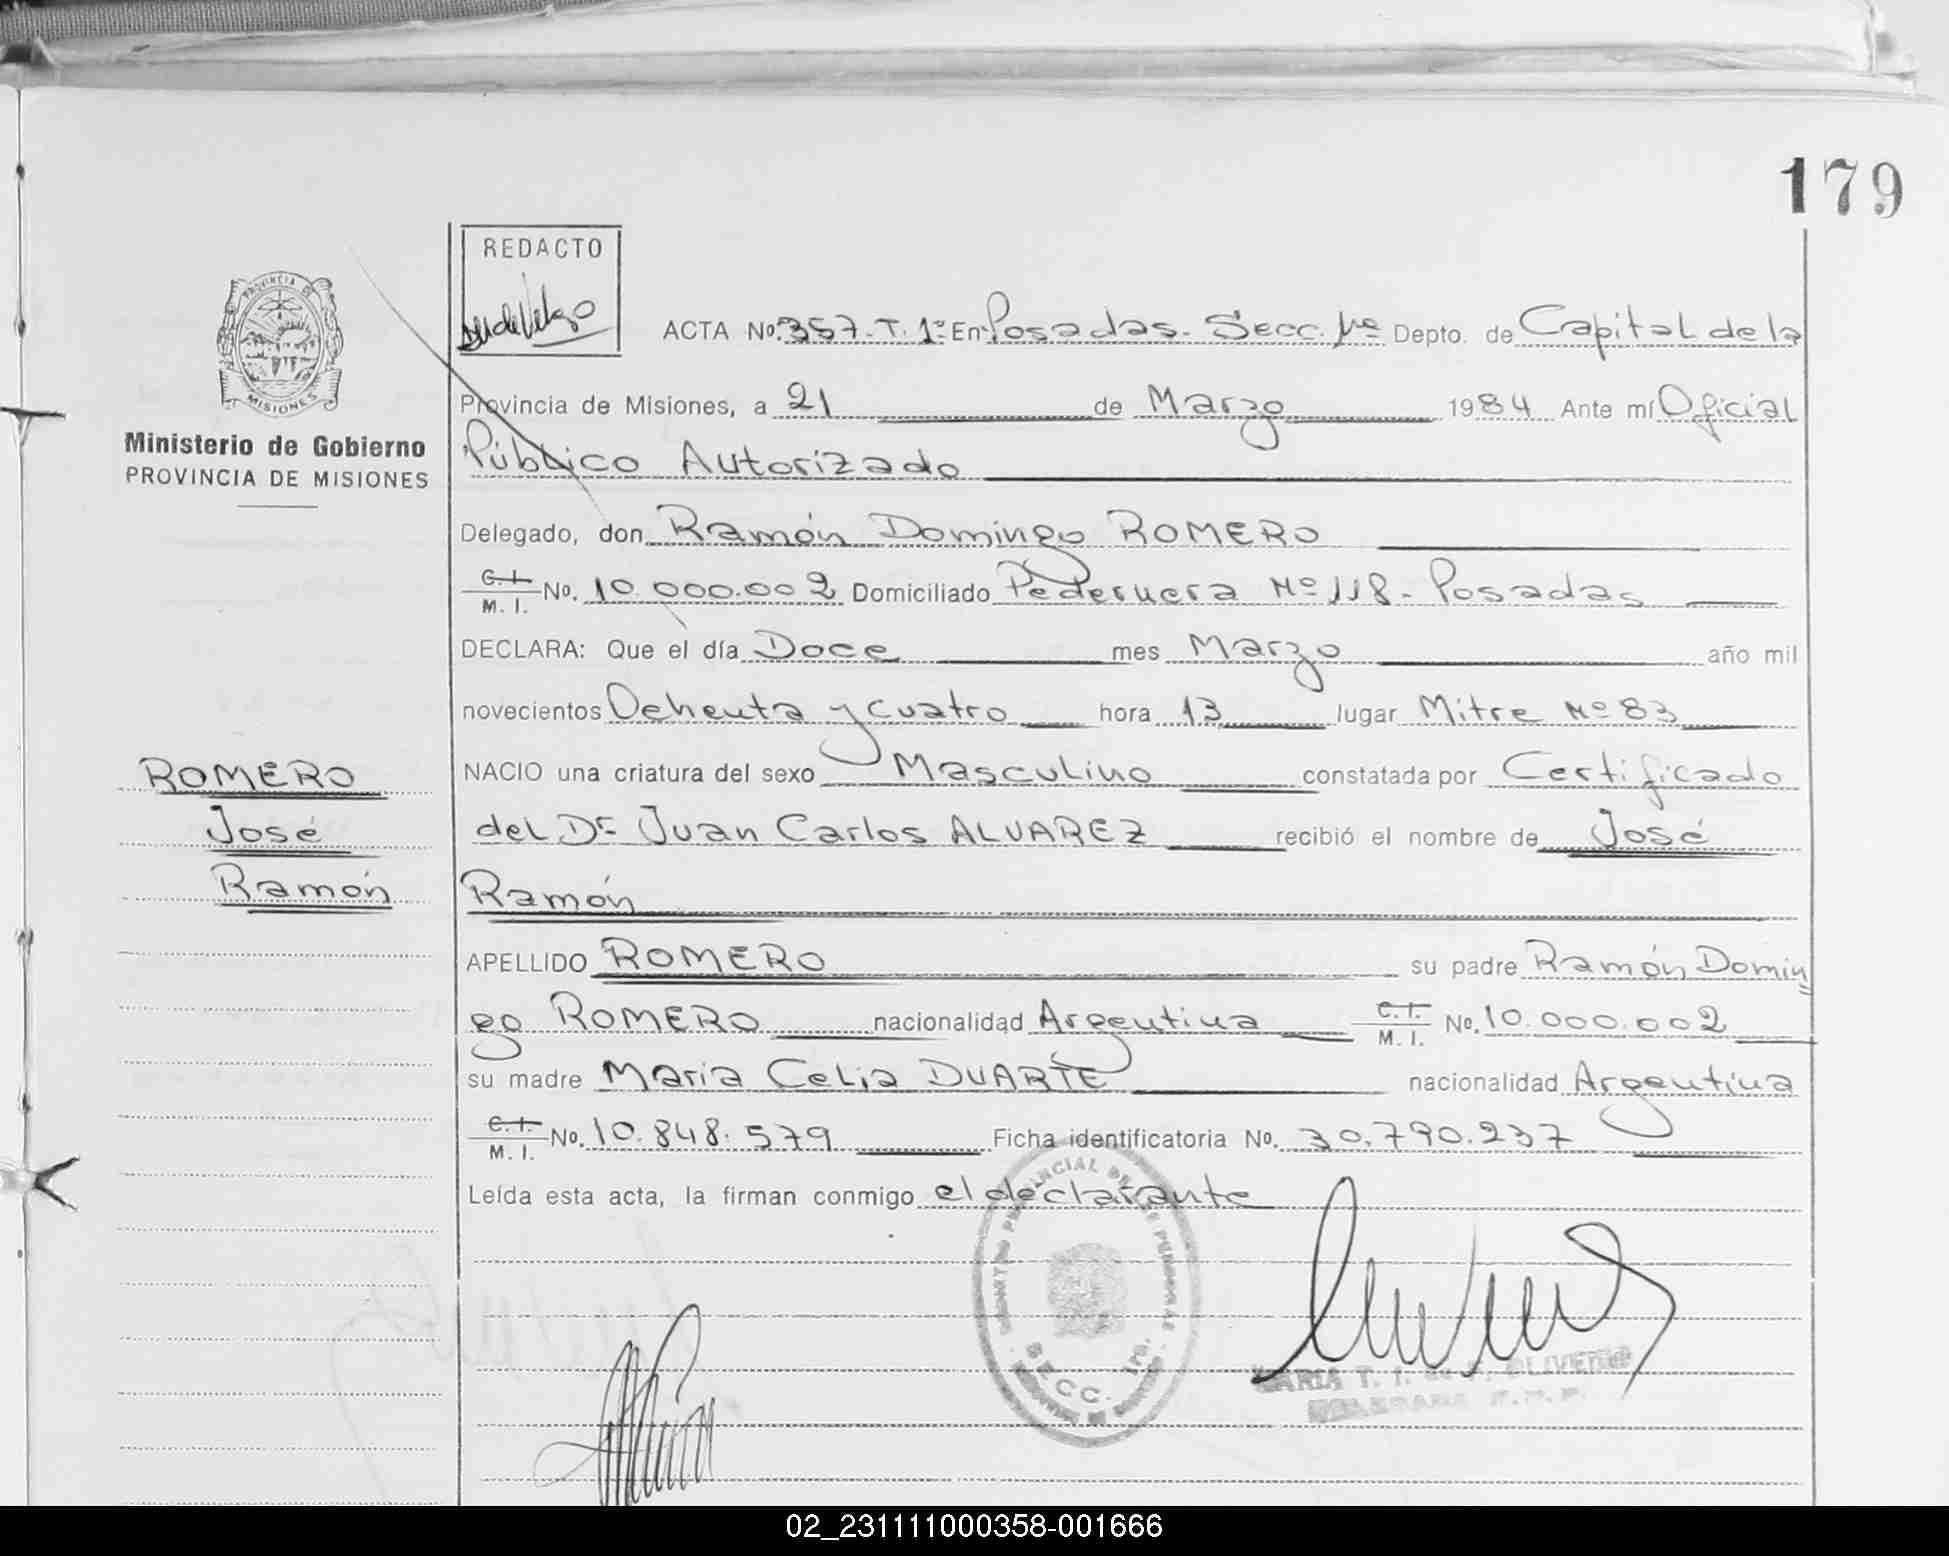 179
REDACTO
ACTA Nº. 357-T. 1º En Posadas. Secc. 1ra Depto. de Capital de la
PROVINCIA DE
MISIONES
Provincia de Misiones, a 21 de Marzo 1984 Ante mí Oficial
Ministerio de Gobierno
PROVINCIA DE MISIONES
Público Autorizado
Delegado, don Ramón Domingo ROMERO
C.I. M. I. No. 10.000.002 Domiciliado Pedernera Nº 118- Posadas
DECLARA: Que el día Doce mes Marzo año mil
novecientos Ochenta y cuatro hora 13 lugar Mitre Nº 83
ROMERO
José
Ramón
NACIO una criatura del sexo Masculino constatada por Certificado
del Dr Juan Carlos ALVAREZ recibió el nombre de José
Ramón
APELLIDO ROMERO su padre Ramón Domin
go ROMERO nacionalidad Argentina C.I. M. I. No. 10.000.002
su madre Maria Celia DUARTE nacionalidad Argentina
C.I. M. I. No. 10.848.579 Ficha identificatoria No. 30.790.237
Leída esta acta, la firman conmigo el declarante
SECC. 1ra.
MARIA T. I. de F. OLIVEIRA
02_231111000358-001666